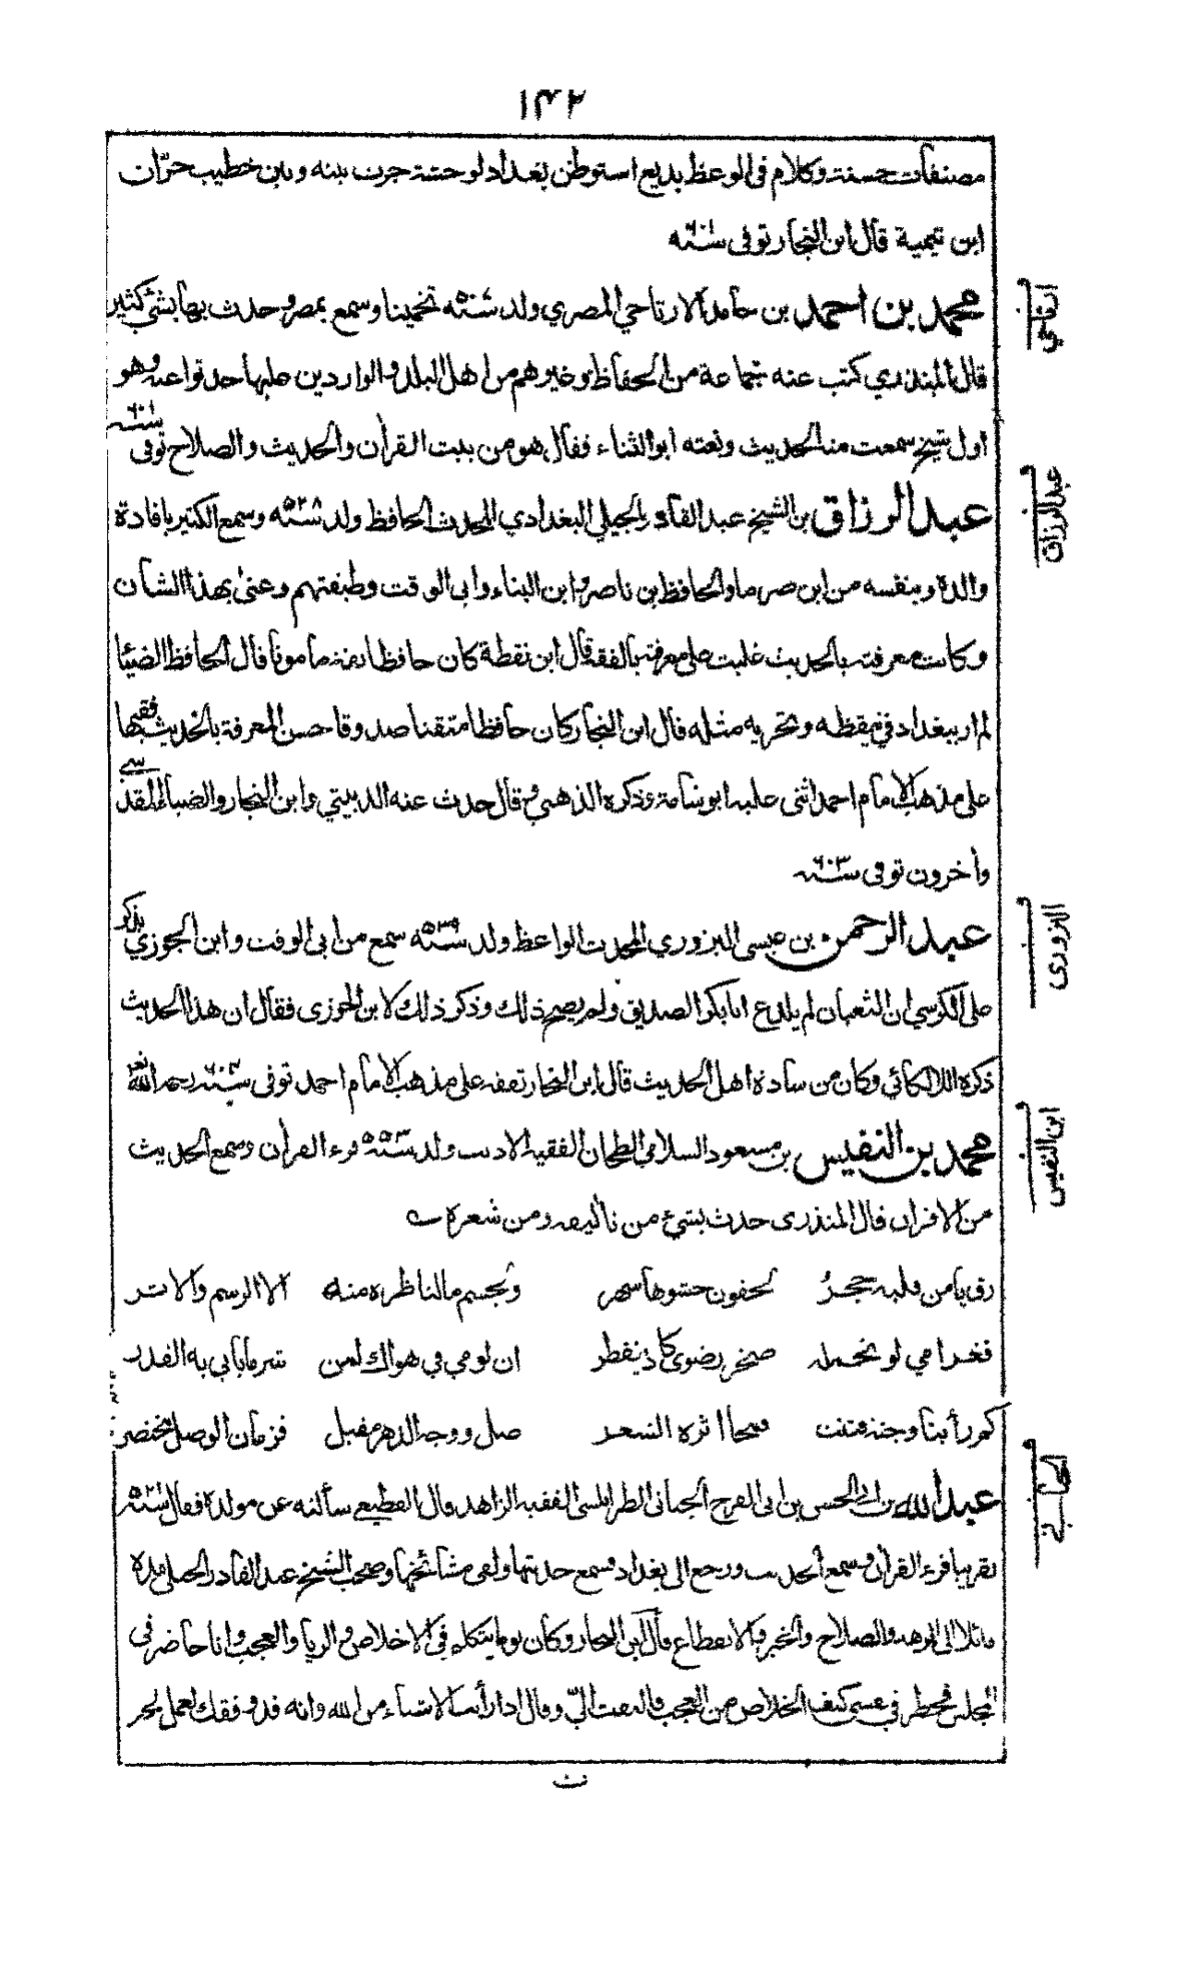 ١٤٢
مصنفات حسنة وكلام فى الوعظ بديع استوطن بغداد لوحشة جرت بينه وبين خطيب حرّان
ابن تيمية قال ابن النجار توفى سنة ٦٠١
ارتاحي
محمد بن احمد بن حامد الارتاحي المصري ولد سنة ٥٠٧ تخمينا وسمع بمصر وحدث بها بشئ كثير
قال المنذري كتب عنه جماعة من الحفاظ وغيرهم من اهل البلد والواردين عليها حدثوا عنه وهو
اول شيخ سمعت منه الحديث ونعته ابو الثناء فقال هو من بيت القرأن والحديث والصلاح توفى سنة ٦٠١
عبد الرزاق
عبد الرزاق بن الشيخ عبد القادر الجيلي البغدادي المحدث الحافظ ولد سنة ٥٢٨ وسمع الكثير بافادة
والده وبنفسه من ابن صرما والحافظ بن ناصر وابن البناء وابى الوقت وطبقتهم وعنى بهذا الشان
وكانت معرفته بالحديث غلبت على معرفته بالفقه قال ابن نقطة كان حافظا ثقة مامونا قال الحافظ الضيا
لم ار ببغداد فى تيقظه وتحريه مثله قال ابن النجار كان حافظا متقنا صدوقا حسن المعرفة بالحديث فقيها
على مذهب الامام احمد اثنى عليه ابو شامة وذكره الذهبى وقال حدث عنه الدبيثي وابن النجار والضياء المقدسے
وأخرون توفى سنة ٦٠٣
البزورى
عبد الرحمن بن عيسى البزوري المحدث الواعظ ولد سنة ٥٣٩ سمع من ابى الوقت وابن الجوزي يذكر
على الكرسي ان الثعبان لم يلدغ ابا بكر الصديق ولم يصح ذلك وذكر ذلك لابن الجوزى فقال ان هذا الحديث
ذكره اللالكائي وكان من سادة اهل الحديث قال ابن النجار تفقه على مذهب الامام احمد توفى سنة ٦٠٤ رحمه الله تعالى
ابن النفيس
محمد بن النفيس بن مسعود السلامي الطحان الفقيه الاديب ولد سنة ٥٥٣ قرء القرأن وسمع الحديث
من الاقران قال المنذرى حدث بشئ من تأليفه ومن شعره ے
رق يا من قلبه حجرُ لجفون حشوها سهر ولجسم ما لناظره منه الا الرسم والاثر
فغرامي لو تحمله صخر رضوى كاد ينفطر ان لومي في هواك لمن شر ما يأتي به القدر
كم رأينا وجنة فتنت فمحا اثره الشعر صل ووجه الدهر مقبل فزمان الوصل مختصر
الجبائي
عبد الله بن ابى الحسن بن ابى الفرج الجبائى الطرابلسى الفقيه الزاهد قال القطيعے سألته عن مولده فقال سنة ٥٢١
تقريبا قرء القرأن وسمع الحديث ورجع الى بغداد وسمع حديثها ولقى مشائخها وصحب الشيخ عبد القادر الجيلى مدة
مائلا الى الزهد والصلاح والخير والانقطاع قال ابن النجار وكان يوما يتكلم في الاخلاص والريا والعجب وانا حاضر فى
المجلس فخطر في نفسى كيف الخلاص من العجب فالتفت اليّ وقال اذا رأيت الاشياء من الله وانه قد وفقك لعمل الخير